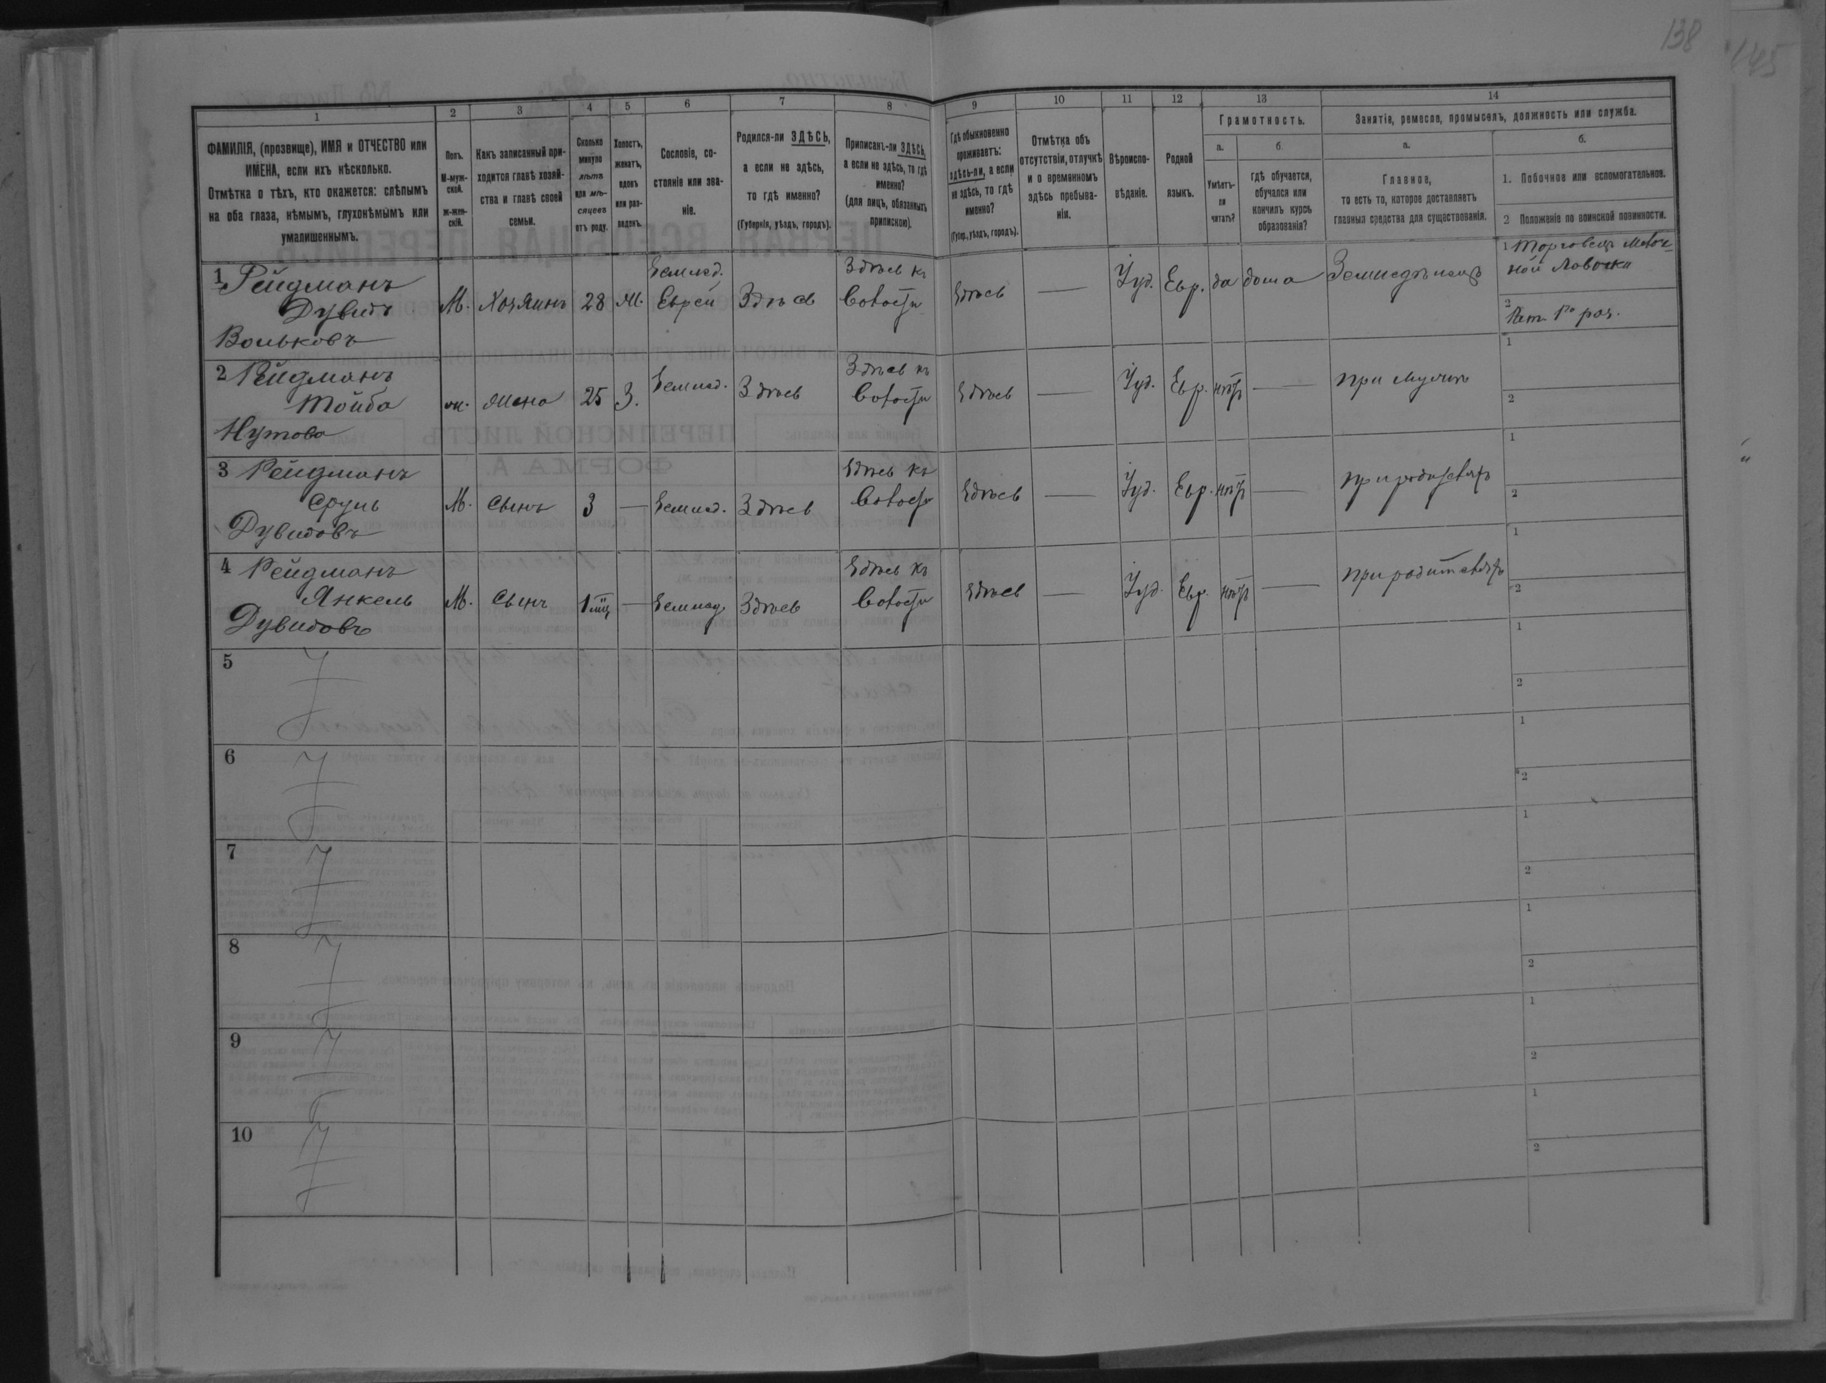 138
145
1 2 3 4 5 6 7 8 9 10 11 12 13 14
ФАМИЛІЯ, (прозвище), ИМЯ и ОТЧЕСТВО или
ИМЕНА, если ихъ нѣсколько.
Отмѣтка о тѣхъ, кто окажется: слѣпымъ
на оба глаза, нѣмымъ, глухонѣмымъ или
умалишеннымъ.
Полъ.
М-муж-
ской.
Ж-жен-
скій.
Какъ записанный при-
ходится главѣ хозяй-
ства и главѣ своей
семьи.
Сколько
минуло
лѣтъ
или мѣ-
сяцевъ
отъ роду.
Холостъ,
женатъ,
вдовъ
или раз-
веденъ.
Сословіе, со-
стояніе или зва-
ніе.
Родился-ли ЗДѢСЬ,
а если не здѣсь,
то гдѣ именно?
(Губернія, уѣздъ, городъ).
Приписанъ-ли ЗДѢСЬ,
а если не здѣсь, то гдѣ
именно?
(для лицъ, обязанныхъ
припискою).
Гдѣ обыкновенно
проживаетъ:
здѣсь-ли, а если
не здѣсь, то гдѣ
именно?
(Губер., уѣздъ, городъ).
Отмѣтка объ
отсутствіи, отлучкѣ
и о временномъ
здѣсь пребыва-
ніи.
Вѣроиспо-
вѣданіе.
Родной
языкъ.
Грамотность.
а.
Умѣетъ-
ли
читать?
б.
гдѣ обучается,
обучался или
кончилъ курсъ
образованія?
Занятіе, ремесло, промыселъ, должность или служба.
а.
Главное,
то есть то, которое доставляетъ
главныя средства для существованія.
б.
1. Побочное или вспомогательное.
2 Положеніе по воинской повинности.
1 Рейдманъ
Дувидъ
Вольковъ
М. Хозяинъ 28 Ж. Землед. Еврей Здѣсь
Здѣсь къ
Здѣсь — Іуд. Евр. да дома Земледѣлецъ
1 Торговецъ Мелоч-
ной Лавочки
2
2 Рейдманъ
Тойба
Нутова
ж. жена 25 З. Землед. Здѣсь
Здѣсь къ
Здѣсь — Іуд. Евр. нѣтъ — при мужѣ
1
2
3 Рейдманъ
Сруль
Дувидовъ
М. сынъ 3 — Землед. Здѣсь
Здѣсь къ
Здѣсь — Іуд. Евр. нѣтъ — при родителяхъ
1
2
4 Рейдманъ
Янкель
Дувидовъ
М. сынъ 1 мѣс — Землед. Здѣсь
Здѣсь къ
Здѣсь — Іуд. Евр. нѣтъ — при родителяхъ
1
2
5
1
2
6
1
2
7
1
2
8
1
2
9
1
2
10
1
2